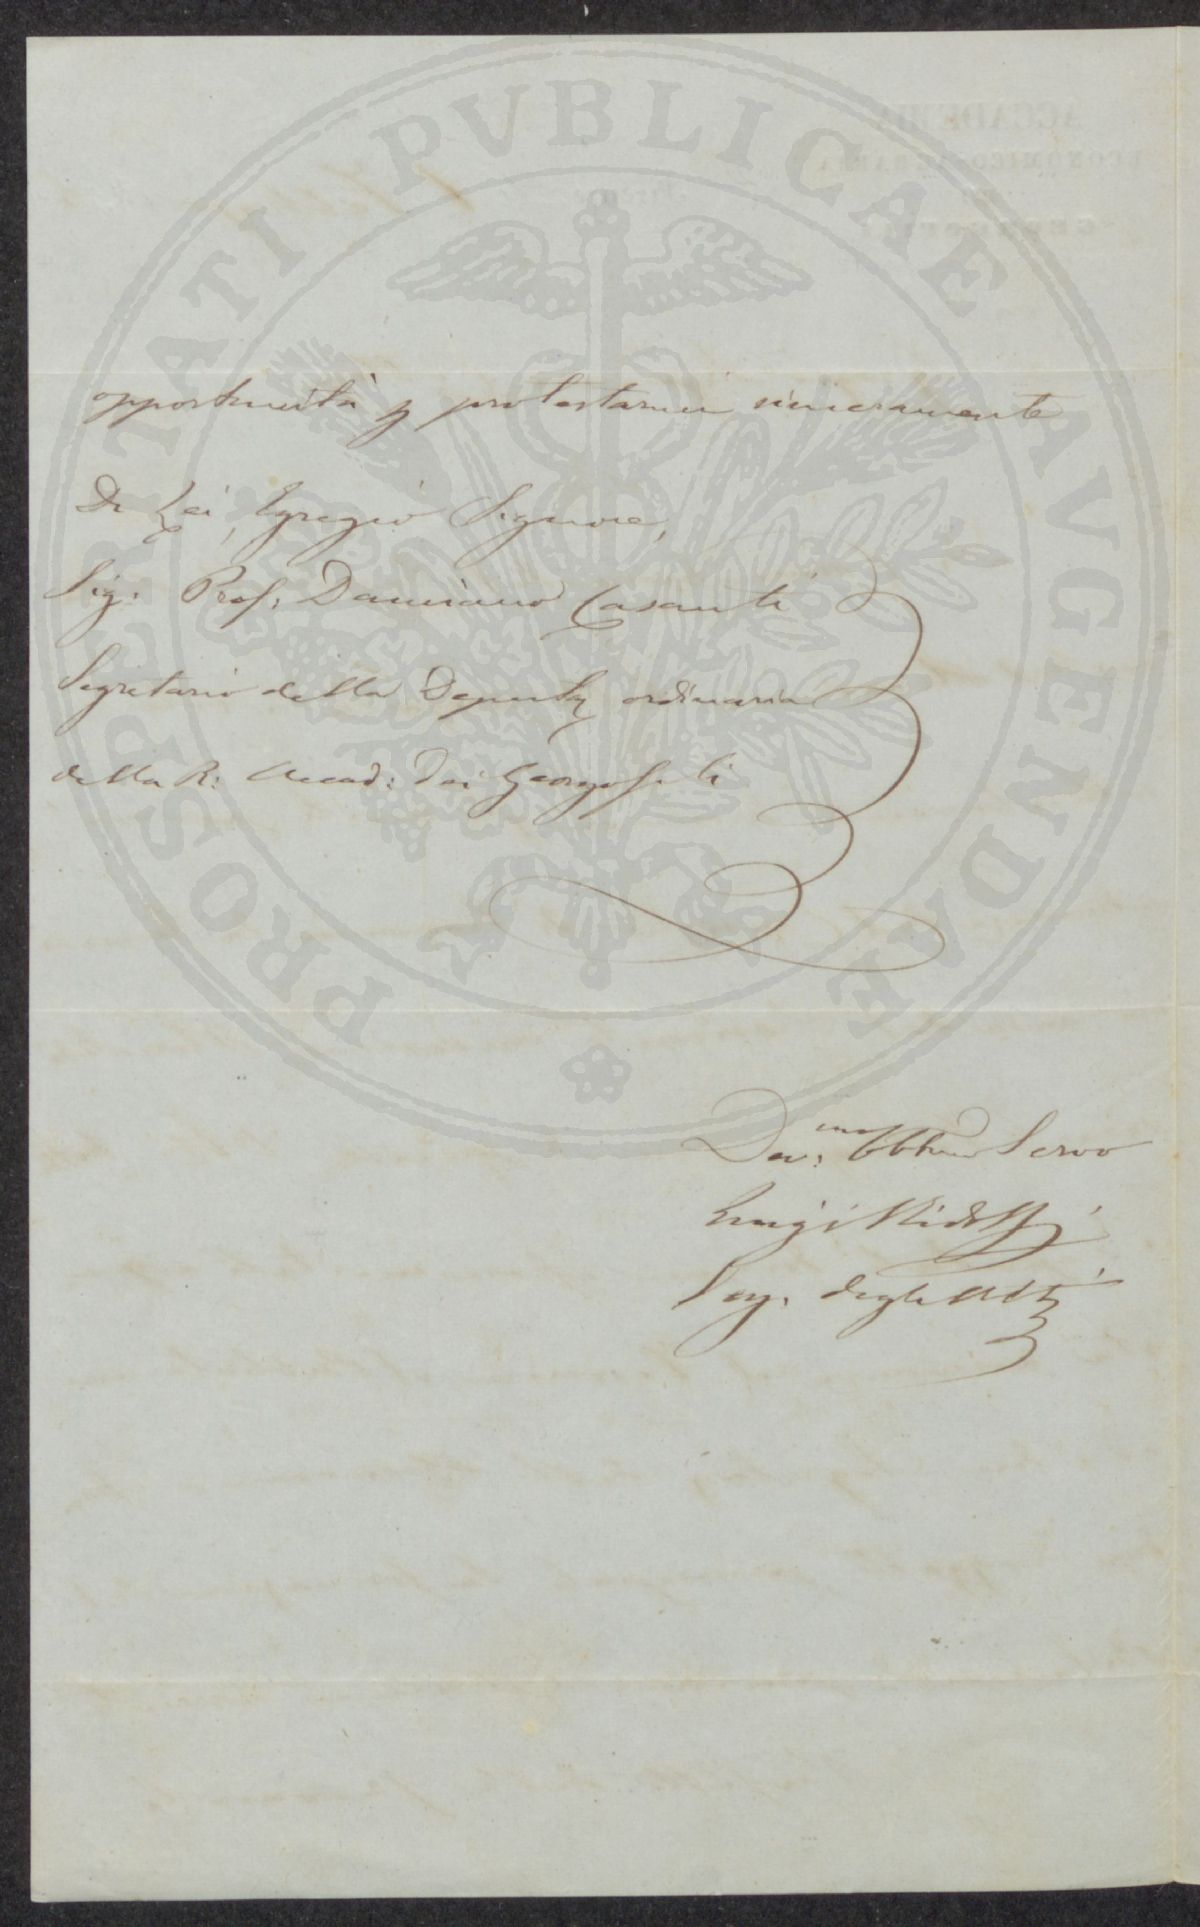 PROSPERITATI PVBLICAE AVGENDAE
opportunità p protestarmi sinceramente
Di Lei, Egregio Signore,
Sig. Prof. Damiano Casanti
Segretario della Deputaz ordinaria
della R. Accad: dei Georgofili
Dev.mo Obbmo Servo
Luigi Ridolfi
Seg. degli Atti